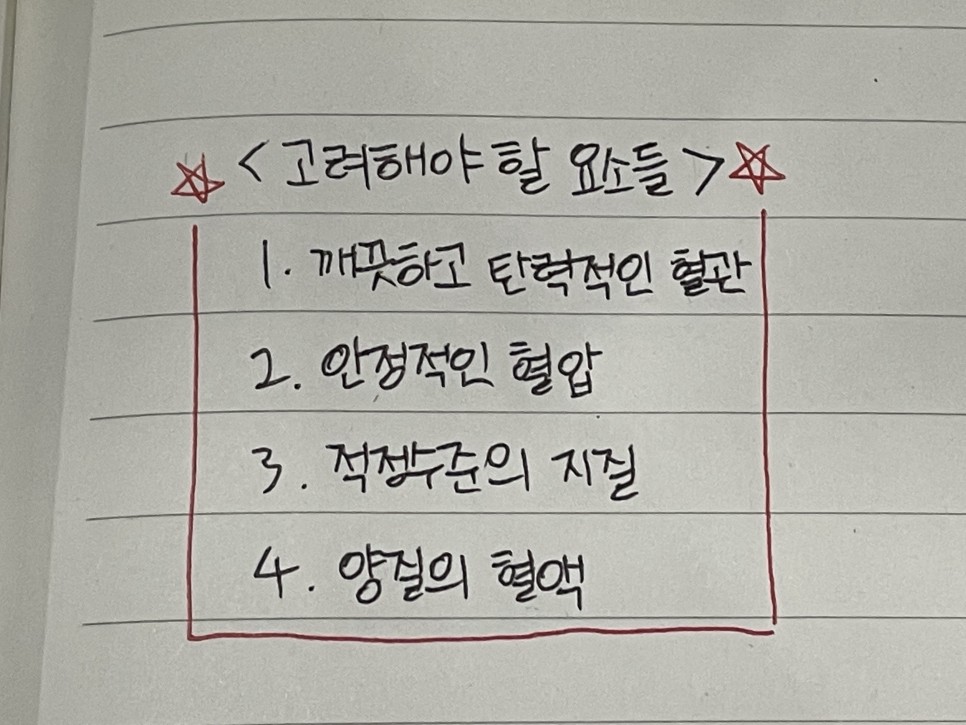 <고려해야 할 요소들>
1. 깨끗하고 탄력적인 혈관
2. 안정적인 혈압
3. 적정수준의 지질
4. 양질의 혈액